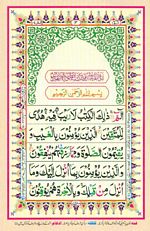 بِسْمِ اللّٰهِ الرَّحْمٰنِ الرَّحِيْمِ
الٓمّٓ ذٰلِكَ الْكِتٰبُ لَا رَيْبَ فِيْهِ هُدًى
لِّلْمُتَّقِيْنَ الَّذِيْنَ يُؤْمِنُوْنَ بِالْغَيْبِ وَ
يُقِيْمُوْنَ الصَّلٰوةَ وَمِمَّا رَزَقْنٰهُمْ يُنْفِقُوْنَ
وَالَّذِيْنَ يُؤْمِنُوْنَ بِمَآ اُنْزِلَ اِلَيْكَ وَمَآ
اُنْزِلَ مِنْ قَبْلِكَ وَبِالْاٰخِرَةِ هُمْ يُوْقِنُوْنَ